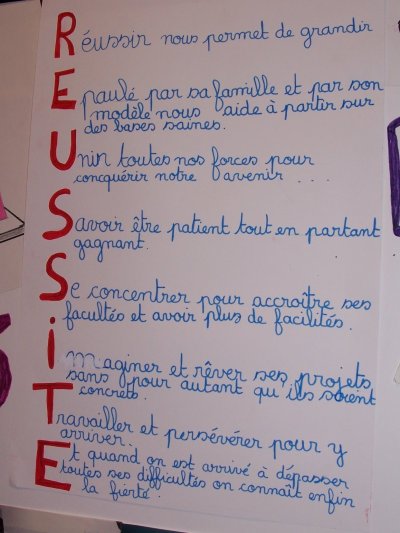 Réussir nous permet de grandir
Epaulé par sa famille et par son
modèle nous aide à partir sur
des bases saines.
Unin toutes nos forces pour
conquérir notre avenir . . .
Savoir être patient tout en partant
gagnant.
Se concentrer pour accroître ses
facultés et avoir plus de facilités.
imaginer et rêver ses projets
sans pour autant qu'ils soient
concrets.
Travailler et persévérer pour y
arriver.
Et quand on est arrivé à dépasser
toutes ses difficultés on connaît enfin
la fierté.